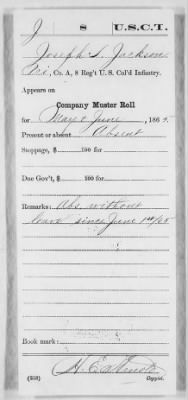 J 8 U.S.C.T.
Joseph S. Jackson
Pvt., Co. A, 8 Reg't U. S. Col'd Infantry.
Appears on
Company Muster Roll
for May & June, 1865.
Present or absent Absent
Stoppage, $ 100 for
Due Gov't, $ 100 for
Remarks: Abs. without
leave since June 1st/65
Book mark:
(358) Copyist.